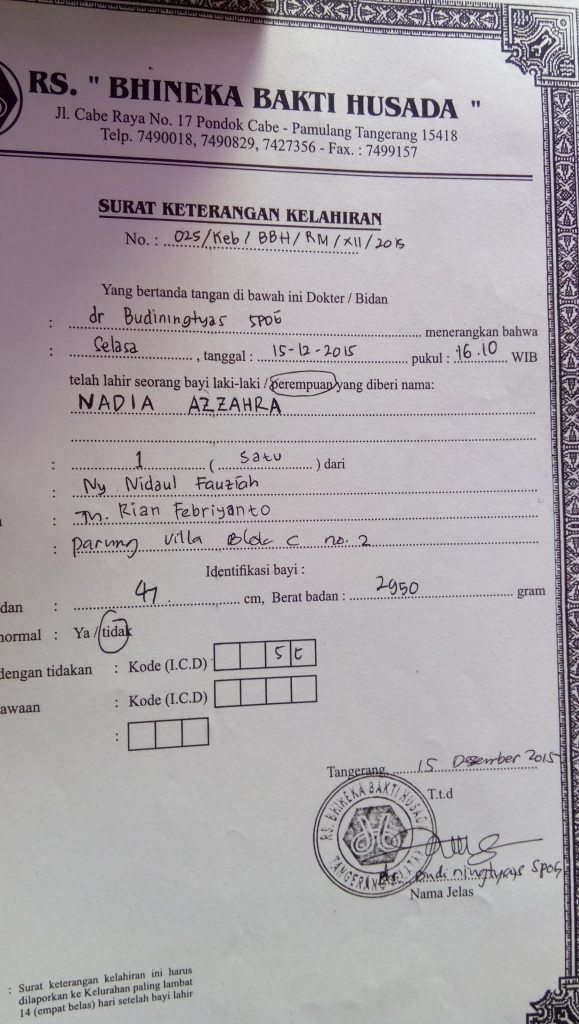 RS. " BHINEKA BAKTI HUSADA "
Jl. Cabe Raya No. 17 Pondok Cabe - Pamulang Tangerang 15418
Telp. 7490018, 7490829, 7427356 - Fax. : 7499157
SURAT KETERANGAN KELAHIRAN
No. : 025/Keb/BBH/RM/XII/2015
Yang bertanda tangan di bawah ini Dokter / Bidan
: dr Budiningtyas SPOG menerangkan bahwa
: Selasa , tanggal : 15-12-2015 pukul : 16.10 WIB
telah lahir seorang bayi laki-laki / perempuan yang diberi nama:
NADIA AZZAHRA
: 1 ( Satu ) dari
: Ny Nidaul Fauziah
: Tn. Rian Febriyanto
: Parung Villa Blok C no. 2
Identifikasi bayi :
dan : 47 cm, Berat badan : 2950 gram
normal : Ya / tidak
dengan tidakan : Kode (I.C.D) 5
awaan : Kode (I.C.D)
:
Tangerang, 15 Desember 2015
T.t.d
RS. BHINEKA BAKTI HUSADA
TANGERANG SELATAN
dr. Budiningtyas SPOG
Nama Jelas
: Surat keterangan kelahiran ini harus
dilaporkan ke Kelurahan paling lambat
14 (empat belas) hari setelah bayi lahir